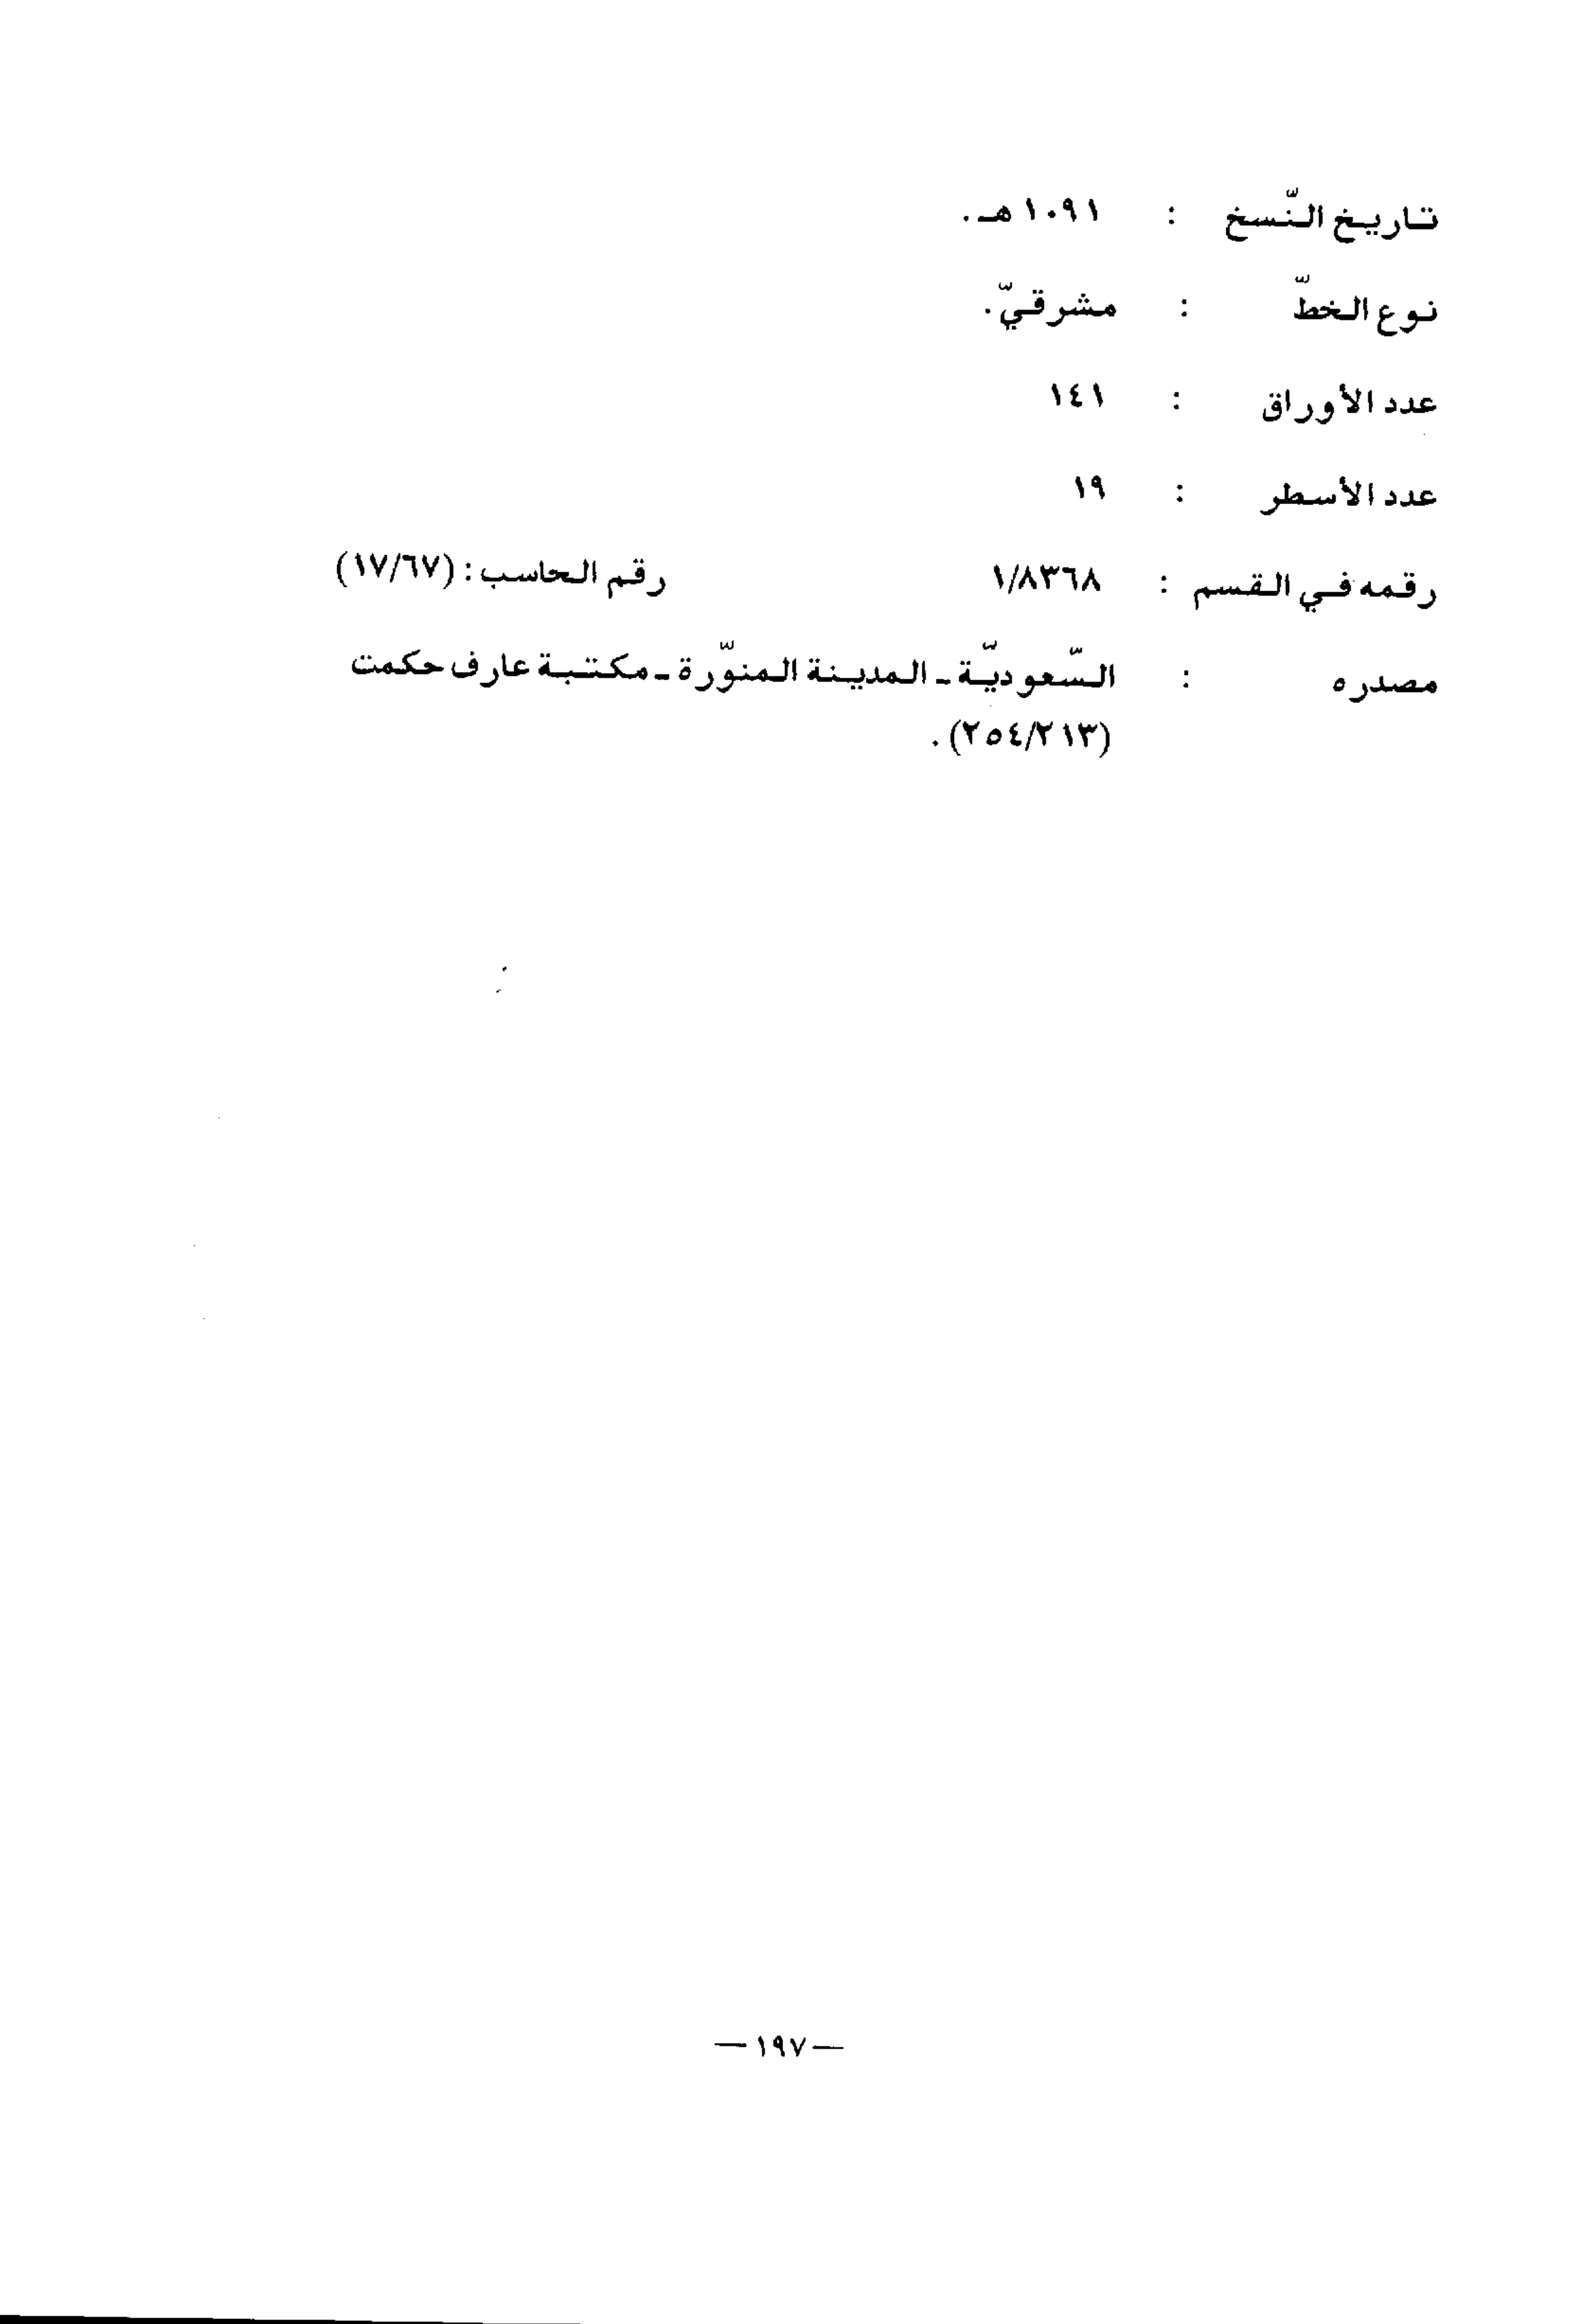 تاريخ النّسخ : ١٠٩١ هـ .
نوع الخطّ : مشرقيّ .
عدد الأوراق : ١٤١
عدد الأسطر : ١٩
رقمه في القسم : ١/٨٣٦٨ رقم الحاسب : (١٧/٦٧)
مصدره : السّعوديّة ـ المدينة المنوّرة ـ مكتبة عارف حكمت
(٢٥٤/٢١٣) .
— ١٩٧ —